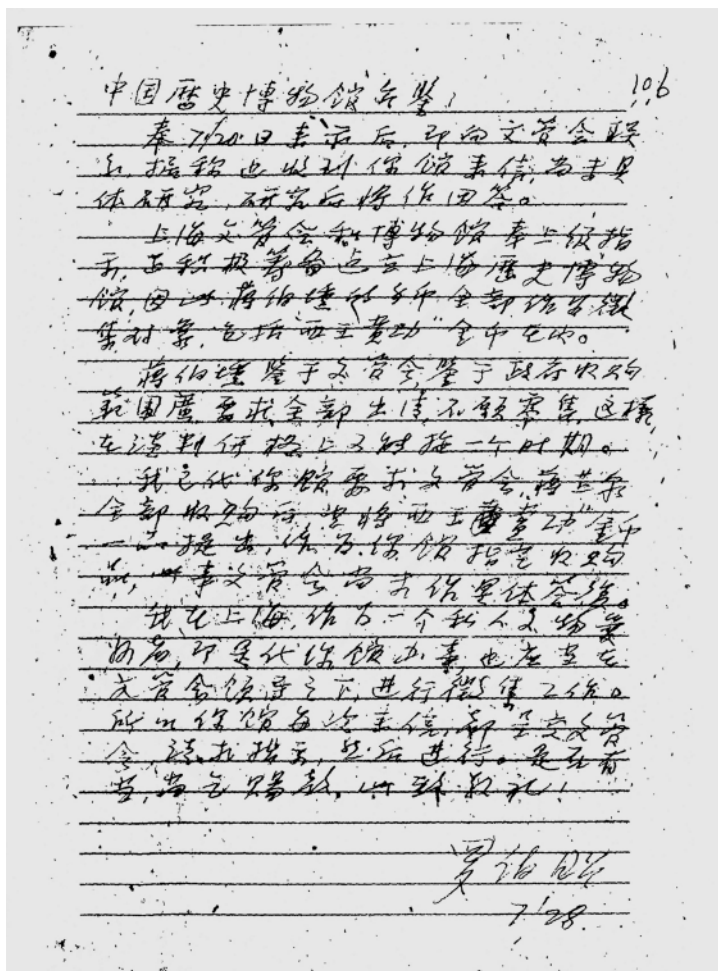 106
中国歷史博物館台鑒：
奉7/20日来示后，即向文管会联
系，据称也收到你館来信，尚未具
体研究，研究后將作回答。
上海文管会和博物館奉上级指
示，正积极筹备建立上海歷史博物
館，因此蔣伯壎的金币全部作为徵
集对象，包括"西王賞功"金币在内。
蔣伯壎鉴于文管会鉴于政府收购
範囲廣，要求全部出售，不願零售，这樣，
在談判价格上又能拖一个时期。
我已代你館要求文管会，蔣共泉
全部收购后，望将"西王賞功"金币
一品提出，作为你館指定收购
品，此事文管会尚未作具体答复。
我在上海，作为一个私人文物爱
好者，即是代你館办事，也应当在
文管会领导之下，进行徵集工作。
所以你館每次来信，都呈交文管
会，請求指示，然后进行。是否有
当，尚乞賜教，此致敬礼！
罗伯昭
7/28